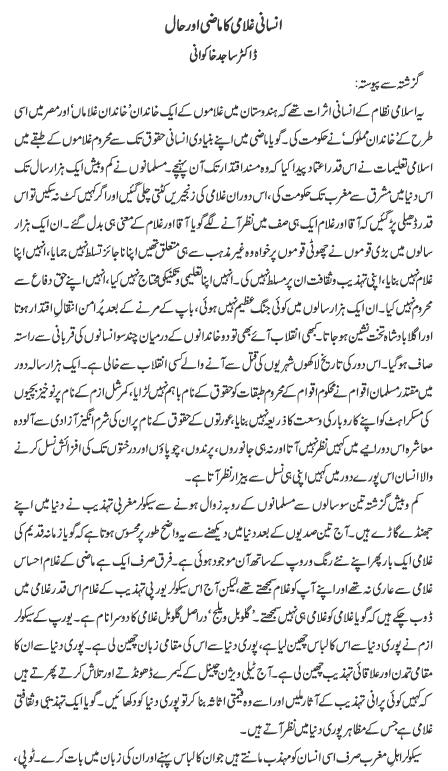 انسانی غلامی کا ماضی اور حال
ڈاکٹر ساجد خاکوانی
گزشتہ سے پیوستہ:
یہ اسلامی نظام کے انسانی اثرات تھے کہ ہندوستان میں غلاموں کے ایک خاندان ’خاندان غلاماں‘ اور مصر میں اسی
طرح کے ’خاندان مملوک‘ نے حکومت کی۔ گویا ماضی میں اپنے بنیادی انسانی حقوق تک سے محروم غلاموں کے طبقے میں
اسلامی تعلیمات نے اس قدر اعتماد پیدا کیا کہ وہ مسند اقتدار تک آن پہنچے۔ مسلمانوں نے کم و بیش ایک ہزار سال تک
اس دنیا میں مشرق سے مغرب تک حکومت کی، اس دوران غلامی کی زنجیریں کٹتی چلی گئیں اور اگر کہیں کٹ نہ سکیں تو اس
قدر ڈھیلی پڑ گئیں کہ آقا اور غلام ایک ہی صف میں نظر آنے لگے گویا آقا اور غلام کے معنی ہی بدل گئے۔ ان ایک ہزار
سالوں میں بڑی قوموں نے چھوٹی قوموں پر خواہ وہ غیر مذہب سے ہی متعلق تھیں اپنا ناجائز تسلط نہیں جمایا، انہیں اپنا
غلام نہیں بنایا، اپنی تہذیب و ثقافت ان پر مسلط نہیں کی۔ انہیں اپنا تعلیمی و تکنیکی محتاج نہیں کیا، انہیں اپنے حق دفاع سے
محروم نہیں کیا۔ ان ایک ہزار سالوں میں کوئی جنگ عظیم نہیں ہوئی، باپ کے مرنے کے بعد پُر امن انتقال اقتدار ہوتا
اور اگلا بادشاہ تخت نشین ہو جاتا۔ کبھی انقلاب آئے بھی تو دو خاندانوں کے درمیان چند سو انسانوں کی قربانی سے راستہ
صاف ہو گیا۔ اس دور کی تاریخ لاکھوں شہریوں کی قتل سے آنے والے کسی انقلاب سے خالی ہے۔ ایک ہزار سالہ دور میں
مقتدر مسلمان اقوام نے محکوم اقوام کے محروم طبقات کو حقوق کے نام باہم نہیں لڑایا، کمرشل ازم کے نام پر نوخیز بچیوں
کی مسکراہٹ کو اپنے کاروبار کی وسعت کا ذریعہ نہیں بنایا، عورتوں کے حقوق کے نام پر ان کی شرم انگیز آزادی سے آلودہ
معاشرہ اس دورانیے میں کہیں نظر نہیں آتا اور نہ ہی جانوروں، پرندوں، چوپاؤں اور درختوں تک کی افزائش نسل کرنے
والا انسان اس پورے دور میں کہیں اپنی ہی نسل سے بیزار نظر آتا ہے۔
کم و بیش گزشتہ تین سو سالوں سے مسلمانوں کے روبہ زوال ہونے سے سیکولر مغربی تہذیب نے دنیا میں اپنے
جھنڈے گاڑے ہیں۔ آج تین صدیوں کے بعد دنیا میں دیکھنے سے یہ واضح طور پر محسوس ہوتا ہے کہ گویا زمانہ قدیم کی
غلامی ایک بار پھر اپنے نئے رنگ و روپ کے ساتھ آن موجود ہوئی ہے۔ فرق صرف ایک ہے ماضی کے غلام احساس
غلامی سے عاری نہ تھے اور اپنے آپ کو غلام سمجھتے تھے، لیکن آج اس سیکولر یورپی تہذیب کے غلام اس قدر غلامی میں
ڈوب چکے ہیں کہ گویا غلامی کو غلامی ہی نہیں سمجھتے۔ ’گلوبل ویلج‘ دراصل گلوبل غلامی کا دوسرا نام ہے۔ یورپ کے سیکولر
ازم نے پوری دنیا سے اس کا لباس چھین لیا ہے، پوری دنیا سے اس کی مقامی زبان چھین لی ہے، پوری دنیا سے ان کا
مقامی تمدن اور علاقائی تہذیب چھین لی ہے۔ آج ٹیلی ویژن چینل کے کیمرے ڈھونڈتے اور تلاش کرتے پھرتے ہیں
کہ کہیں کوئی پرانی تہذیب کے آثار ملیں اور اسے وہ قیمتی اثاثہ بنا کر تو پوری دنیا کو دکھائیں۔ گویا ایک تہذیبی و ثقافتی
غلامی ہے جس کے مظاہر پوری دنیا میں نظر آتے ہیں۔
سیکولر اہل مغرب صرف اسی انسان کو مہذب مانتے ہیں جو ان کا لباس پہنے اور ان کی زبان میں بات کرے۔ ٹوپی،